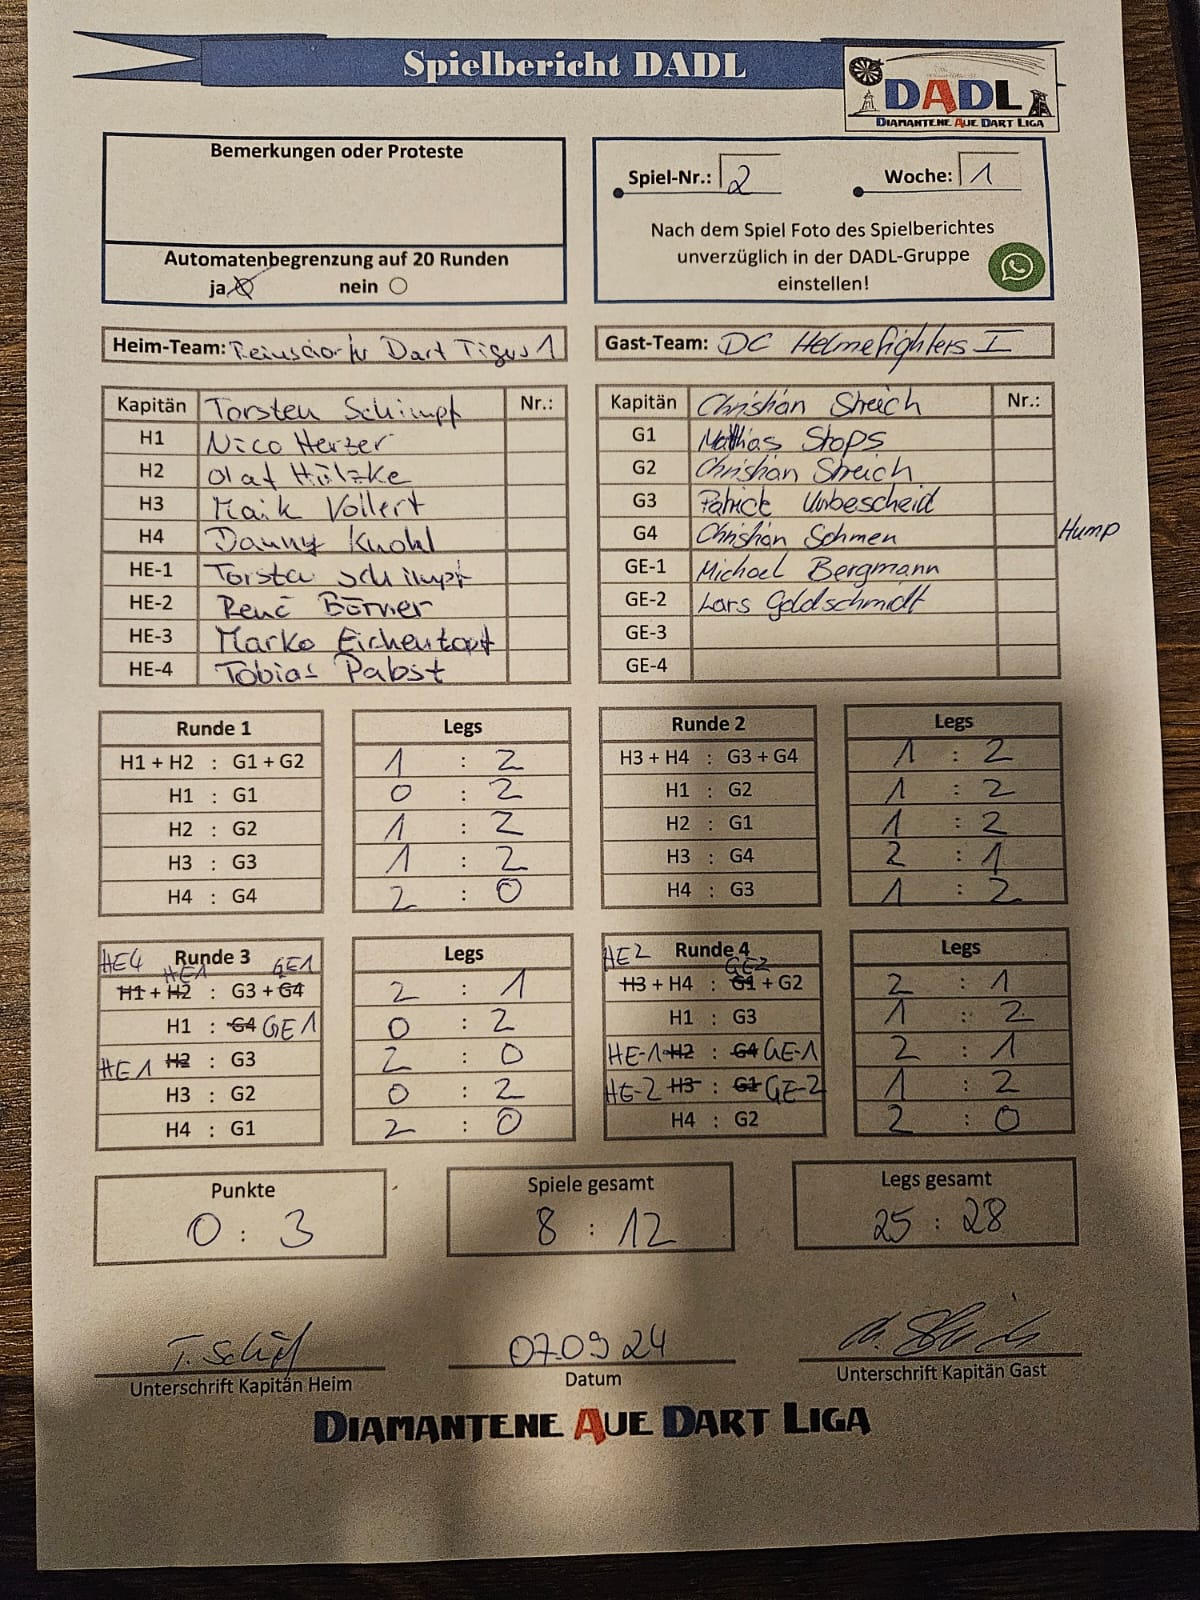 Spielbericht DADL
DADL
DIAMANTENE AUE DART LIGA
Bemerkungen oder Proteste
Automatenbegrenzung auf 20 Runden
ja nein
Spiel-Nr.: 2 Woche: 1
Nach dem Spiel Foto des Spielberichtes
unverzüglich in der DADL-Gruppe
einstellen!
Heim-Team: Dart Tigers 1
Gast-Team: DC Helmefighters I
Kapitän Torsten Schimpf Nr.:
H1 Nico Herzer
H2 Olaf Hülzke
H3 Maik Vollert
H4 Danny
HE-1 Torsten Schimpf
HE-2 René Börner
HE-3 Marko Eichentopf
HE-4 Tobias Pabst
Kapitän Christian Streich Nr.:
G1 Mathias Stops
G2 Christian Streich
G3 Patrick Unbescheid
G4 Christian Hump
GE-1 Michael Bergmann
GE-2 Lars Goldschmidt
GE-3
GE-4
Runde 1 Legs
H1 + H2 : G1 + G2 1 : 2
H1 : G1 0 : 2
H2 : G2 1 : 2
H3 : G3 1 : 2
H4 : G4 2 : 0
Runde 2 Legs
H3 + H4 : G3 + G4 1 : 2
H1 : G2 1 : 2
H2 : G1 1 : 2
H3 : G4 2 : 1
H4 : G3 1 : 2
HE4 Runde 3 Legs
HE1 GE1
H1 + H2 : G3 + G4 2 : 1
H1 : G4 GE1 0 : 2
HE1 H2 : G3 2 : 0
H3 : G2 0 : 2
H4 : G1 2 : 0
HE2 Runde 4 Legs
GE2
H3 + H4 : G1 + G2 2 : 1
H1 : G3 1 : 2
HE-1 H2 : G4 GE-1 2 : 1
HE-2 H3 : G1 GE-2 1 : 2
H4 : G2 2 : 0
Punkte
0 : 3
Spiele gesamt
8 : 12
Legs gesamt
25 : 28
T. Schif
07.09.24
Unterschrift Kapitän Heim
Datum
Unterschrift Kapitän Gast
DIAMANTENE AUE DART LIGA